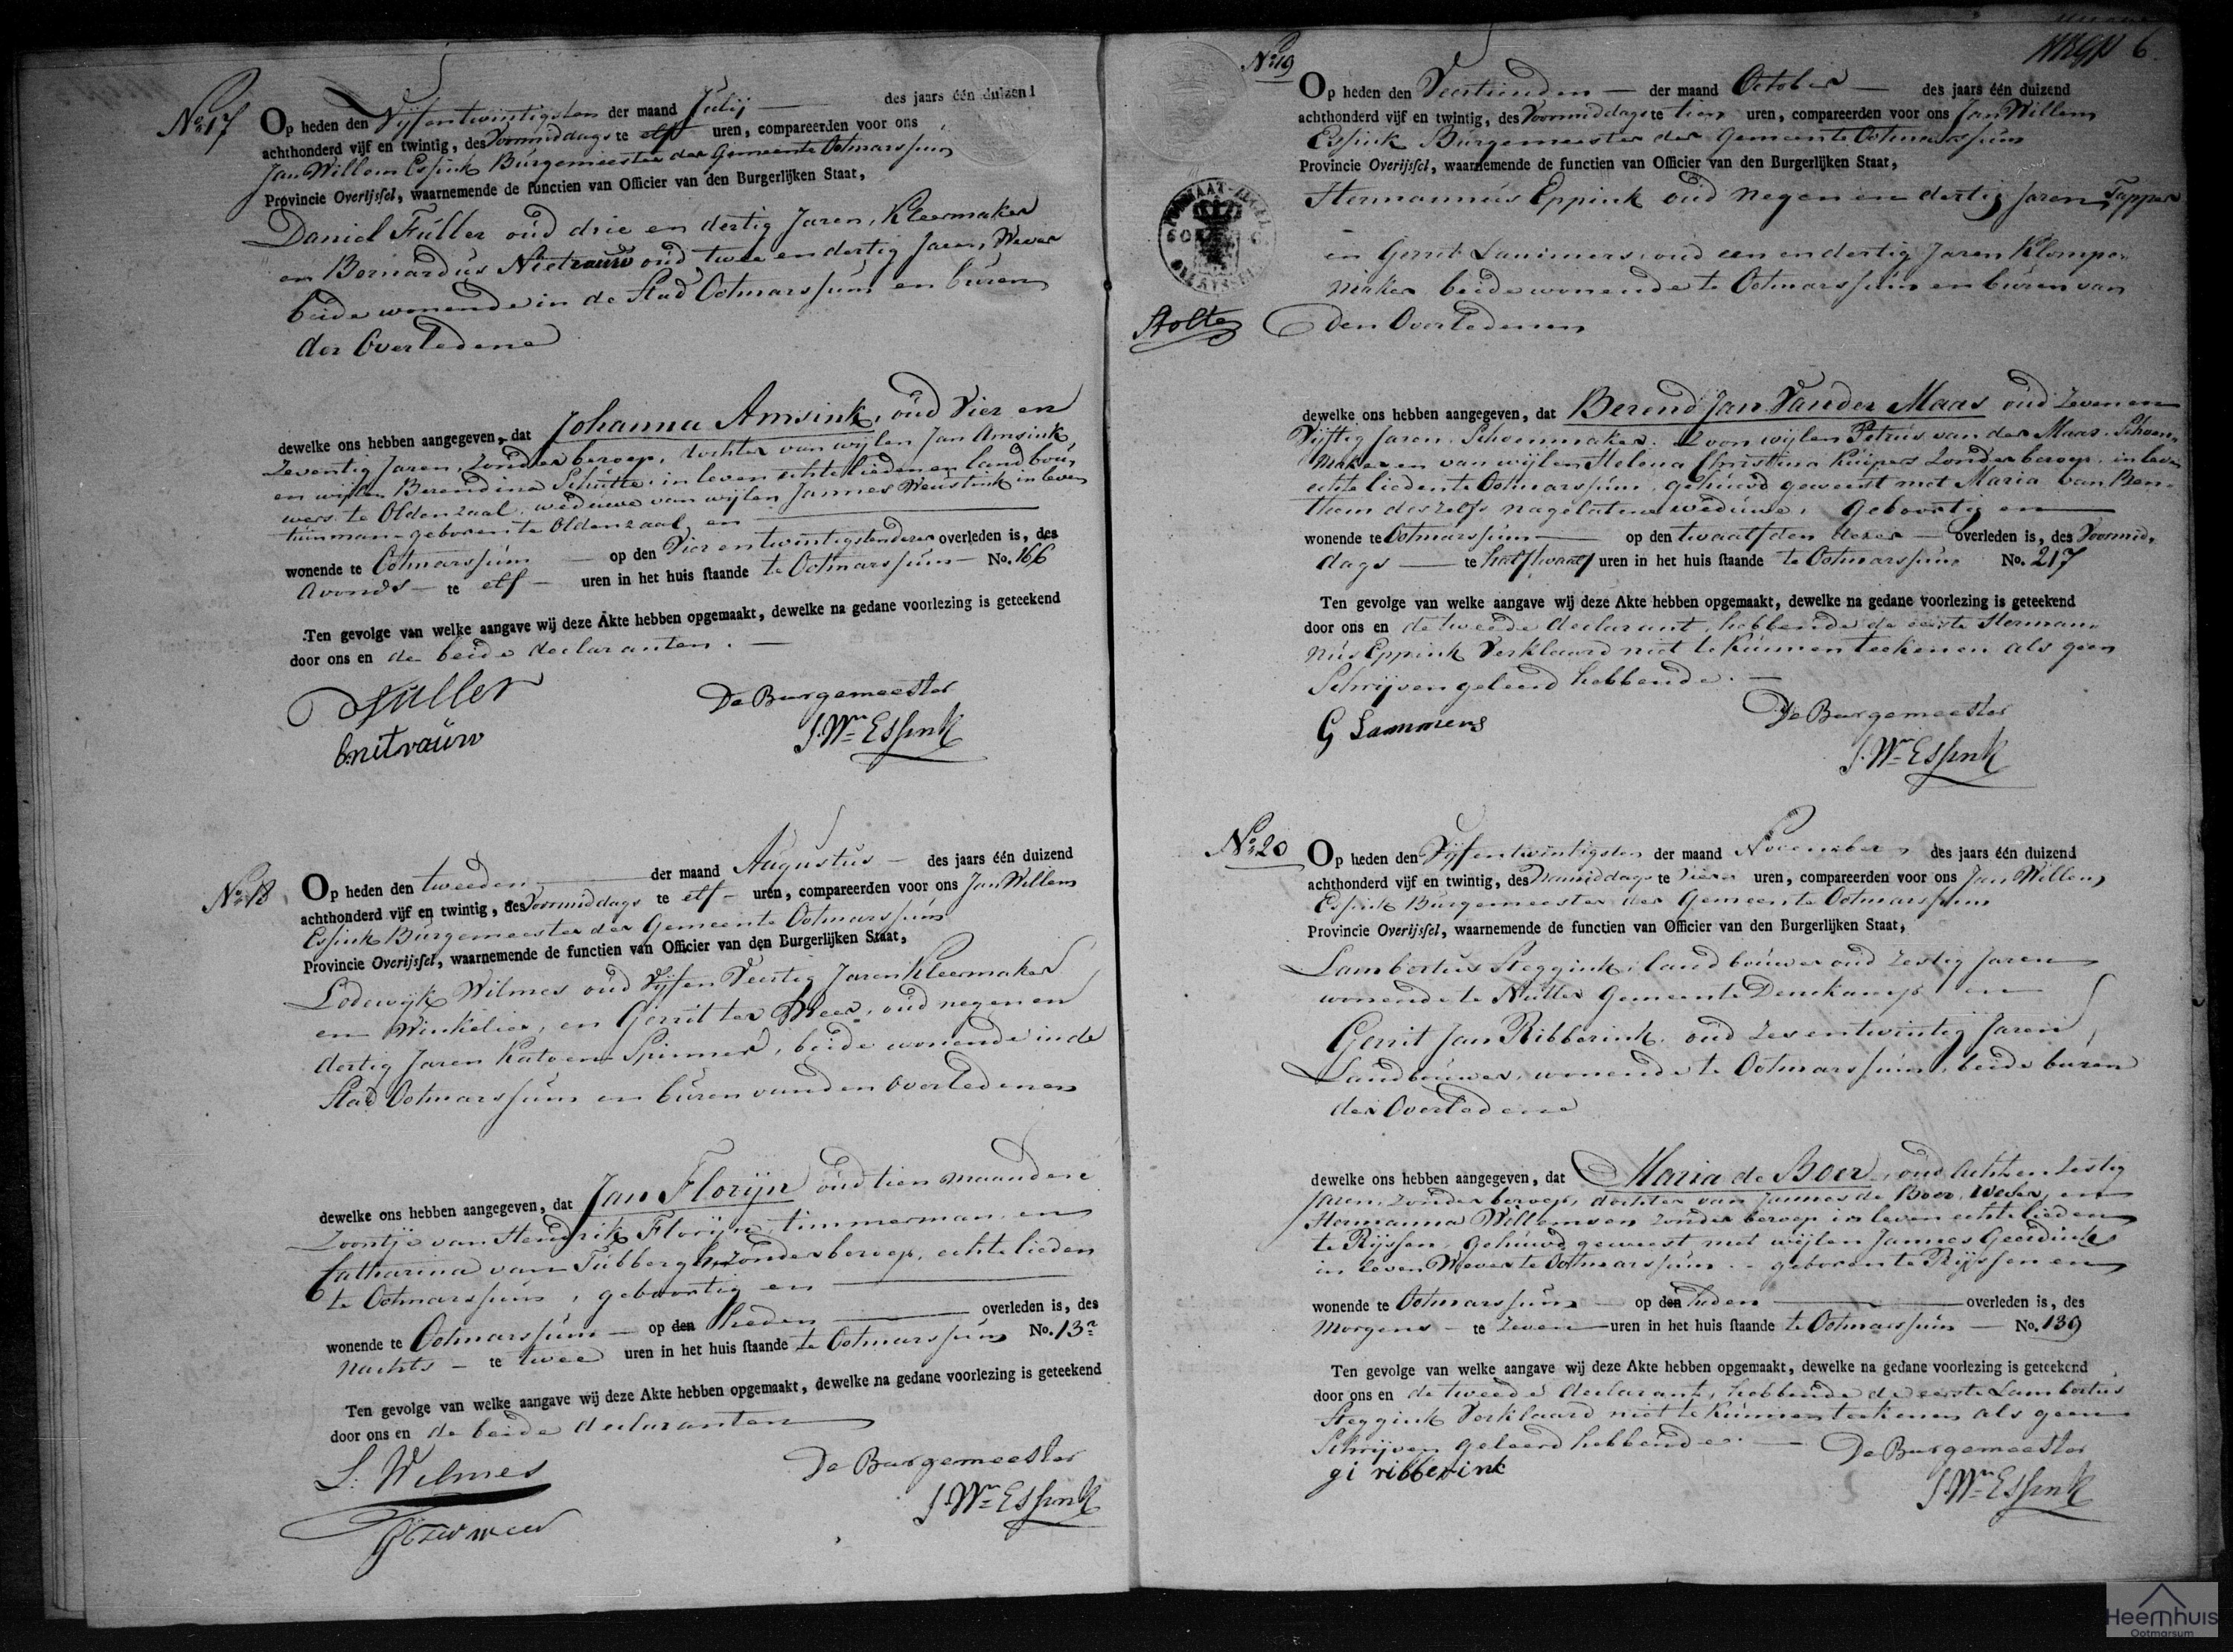 No. 17
Op heden den Vijfentwintigsten der maand Julij des jaars één duizend
achthonderd vijf en twintig, des Voormiddags te elf uren, compareerden voor ons
Jan Willem Essink Burgemeester der Gemeente Ootmarssum
Provincie Overijssel, waarnemende de functien van Officier van den Burgerlijken Staat,
Daniel Füller oud drie en dertig Jaren, Kleermaker
en Bernardus Nietrauw oud twee en dertig Jaren, Wever
beide wonende in de Stad Ootmarssum en buren
der Overledene
dewelke ons hebben aangegeven, dat Johanna Amsink, oud Vier en
Zeventig Jaren, zonder beroep, dochter van wijlen Jan Amsink,
en wijlen Berendina Schutte, in leven echtelieden en landbou,,
wers te Oldenzaal, weduwe van wijlen Jannes Weustink in leven
tuinman - geboren te Oldenzaal, en
wonende te Ootmarssum op den Vier en twintigsten dezer overleden is, des
Avonds te elf uren in het huis staande te Ootmarssum No. 166
Ten gevolge van welke aangave wij deze Akte hebben opgemaakt, dewelke na gedane voorlezing is geteekend
door ons en de beide declaranten.
D Füller
De Burgemeester
b:nitrauw
J. Wm Essink
No. 18
Op heden den tweeden der maand Augustus des jaars één duizend
achthonderd vijf en twintig, des Voormiddags te elf uren, compareerden voor ons Jan Willem
Essink Burgemeester der Gemeente Ootmarssum
Provincie Overijssel, waarnemende de functien van Officier van den Burgerlijken Staat,
Lodewijk Wilmes oud Vijf en Veertig Jaren Kleermaker
en Winkelier, en Gerrit ter Weer, oud negen en
dertig Jaren Katoen Spinner, beide wonende in de
Stad Ootmarssum en buren van den Overledenen
dewelke ons hebben aangegeven, dat Jan Florijn oud tien maanden
Zoontje van Hendrik Florijn, timmerman en
Catharina van Tubbergh, zonder beroep, echtelieden
te Ootmarssum, geboortig en
wonende te Ootmarssum op den heden overleden is, des
Nachts te twee uren in het huis staande te Ootmarssum No. 13a
Ten gevolge van welke aangave wij deze Akte hebben opgemaakt, dewelke na gedane voorlezing is geteekend
door ons en de beide declaranten
L: Wilmes
De Burgemeester
G ter weer
J. Wm Essink
No. 19
6.
Op heden den Veertienden der maand October des jaars één duizend
achthonderd vijf en twintig, des Voormiddags te tien uren, compareerden voor ons Jan Willem
Essink Burgemeester der Gemeente Ootmarssum
Provincie Overijssel, waarnemende de functien van Officier van den Burgerlijken Staat,
Hermannus Eppink oud Negen en dertig Jaren, Tapper
en Gerrit Lammers, oud een en dertig Jaren Klompe,,
maker beide wonende te Ootmarssum en buren van
Stolte
den Overledenen
dewelke ons hebben aangegeven, dat Berend Jan Van der Maas oud Zeven en
Vijftig Jaren, Schoenmaker, Zoon wijlen Petrus van der Maas, Schoen,,
maker en van wijlen Helena Christina Kuipers zonder beroep, in leven
echtelieden te Ootmarssum, gehuwd geweest met Maria van Ben,,
them deszelfs nagelatene weduwe, geboortig en
wonende te Ootmarssum op den twaalfden dezer overleden is, des Voormid,,
dags te half twaalf uren in het huis staande te Ootmarssum No. 217
Ten gevolge van welke aangave wij deze Akte hebben opgemaakt, dewelke na gedane voorlezing is geteekend
door ons en de tweede declarant, hebbende de eerste Herman,,
nus Eppink Verklaard niet te kunnen teekenen als geen
Schrijven geleerd hebbende.
G Lammers
De Burgemeester
J. Wm Essink
No. 20
Op heden den Vijfentwintigsten der maand November des jaars één duizend
achthonderd vijf en twintig, des Namiddags te Vier uren, compareerden voor ons Jan Willem
Essink Burgemeester der Gemeente Ootmarssum
Provincie Overijssel, waarnemende de functien van Officier van den Burgerlijken Staat,
Lambertus Steggink, landbouwer oud zestig Jaren
wonende te Nutter Gemeente Denekamp en
Gerrit Jan Ribberink, oud Zes en twintig Jaren,
Landbouwer, wonende te Ootmarssum, beide buren
der Overledene
dewelke ons hebben aangegeven, dat Maria de Boer, oud Acht en Zestig
Jaren, zonder beroep, dochter van Jannes de Boer, Wever, en
Hermanna Willemsen zonder beroep in leven echtelieden
te Rijssen, gehuwd geweest met wijlen Jannes Geerdink
in leven Wever te Ootmarssum - geboren te Rijssen en
wonende te Ootmarssum op den heden overleden is, des
Morgens te Zeven uren in het huis staande te Ootmarssum No. 139
Ten gevolge van welke aangave wij deze Akte hebben opgemaakt, dewelke na gedane voorlezing is geteekend
door ons en de tweede declarant, hebbende de eerste Lambertus
Steggink Verklaard niet te kunnen teekenen als geen
Schrijven geleerd hebbende.
De Burgemeester
gi ribberink
J. Wm Essink
Heemhuis
Ootmarsum